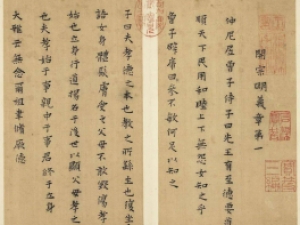 開宗明義章第一
仲尼居曾子侍子曰先王有至德要
順天下民用和睦上下無怨女知之乎
曾子避席曰參不敏何足以知之
子曰夫孝德之本也教之所繇生也復坐
語女身體髮膚受之父母不敢毀傷孝
始也立身行道揚名于後世以顯父母孝之
也夫孝始于事親中于事君終于立身
大雅云無念爾祖聿脩厥德